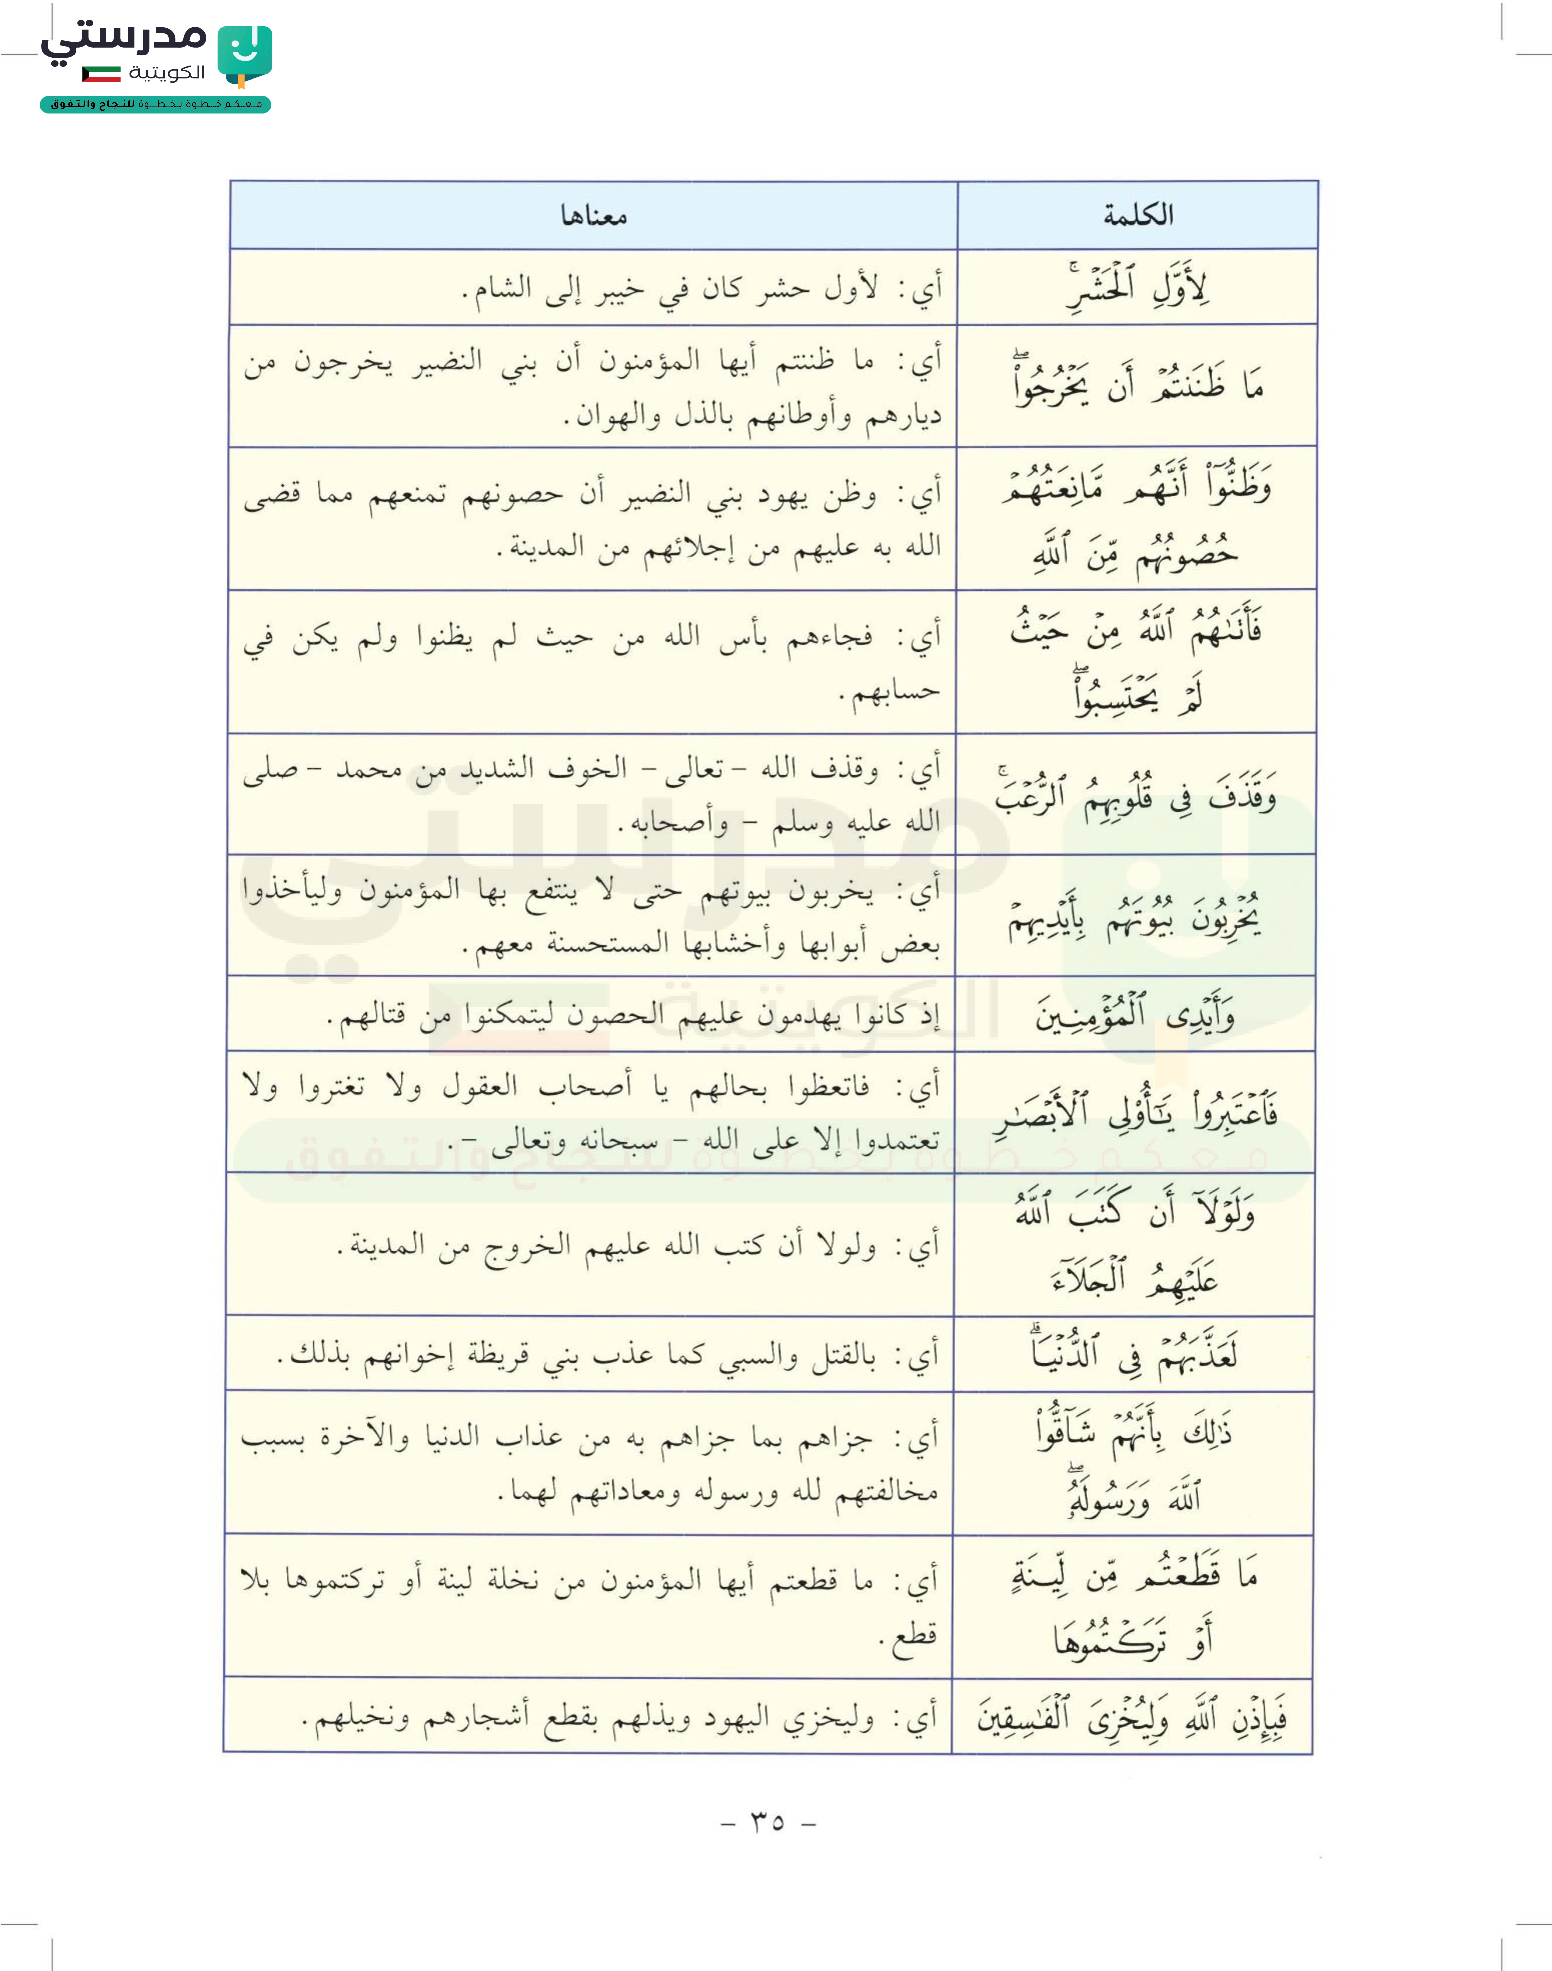 مدرستي
الكويتية
معكم خطوة بخطوة للنجاح والتفوق
الكلمة
معناها
لِأَوَّلِ ٱلْحَشْرِۚ
أي: لأول حشر كان في خيبر إلى الشام.
مَا ظَنَنتُمْ أَن يَخْرُجُواْۖ
أي: ما ظننتم أيها المؤمنون أن بني النضير يخرجون من
ديارهم وأوطانهم بالذل والهوان.
وَظَنُّوٓاْ أَنَّهُم مَّانِعَتُهُمْ
حُصُونُهُم مِّنَ ٱللَّهِ
أي: وظن يهود بني النضير أن حصونهم تمنعهم مما قضى
الله به عليهم من إجلائهم من المدينة.
فَأَتَىٰهُمُ ٱللَّهُ مِنْ حَيْثُ
لَمْ يَحْتَسِبُواْۖ
أي: فجاءهم بأس الله من حيث لم يظنوا ولم يكن في
حسابهم.
وَقَذَفَ فِى قُلُوبِهِمُ ٱلرُّعْبَۚ
أي: وقذف الله – تعالى – الخوف الشديد من محمد – صلى
الله عليه وسلم – وأصحابه.
يُخْرِبُونَ بُيُوتَهُم بِأَيْدِيهِمْ
أي: يخربون بيوتهم حتى لا ينتفع بها المؤمنون وليأخذوا
بعض أبوابها وأخشابها المستحسنة معهم.
وَأَيْدِى ٱلْمُؤْمِنِينَ
إذ كانوا يهدمون عليهم الحصون ليتمكنوا من قتالهم.
فَٱعْتَبِرُواْ يَٰٓأُوْلِى ٱلْأَبْصَٰرِ
أي: فاتعظوا بحالهم يا أصحاب العقول ولا تغتروا ولا
تعتمدوا إلا على الله – سبحانه وتعالى –.
وَلَوْلَآ أَن كَتَبَ ٱللَّهُ
عَلَيْهِمُ ٱلْجَلَآءَ
أي: ولولا أن كتب الله عليهم الخروج من المدينة.
لَعَذَّبَهُمْ فِى ٱلدُّنْيَاۖ
أي: بالقتل والسبي كما عذب بني قريظة إخوانهم بذلك.
ذَٰلِكَ بِأَنَّهُمْ شَآقُّواْ
ٱللَّهَ وَرَسُولَهُۥۖ
أي: جزاهم بما جزاهم به من عذاب الدنيا والآخرة بسبب
مخالفتهم لله ورسوله ومعاداتهم لهما.
مَا قَطَعْتُم مِّن لِّينَةٍ
أَوْ تَرَكْتُمُوهَا
أي: ما قطعتم أيها المؤمنون من نخلة لينة أو تركتموها بلا
قطع.
فَبِإِذْنِ ٱللَّهِ وَلِيُخْزِىَ ٱلْفَٰسِقِينَ
أي: وليخزي اليهود ويذلهم بقطع أشجارهم ونخيلهم.
– ٣٥ –